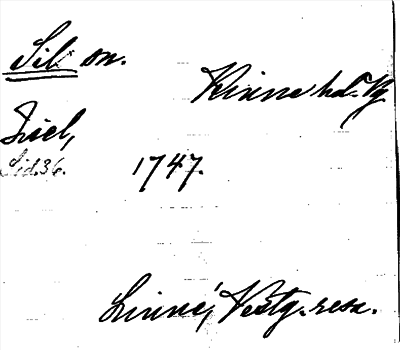 Sil sn.
Kinne hd. Vg
Siel,
Sid. 36.
1747.
Linné, Västg. resa.